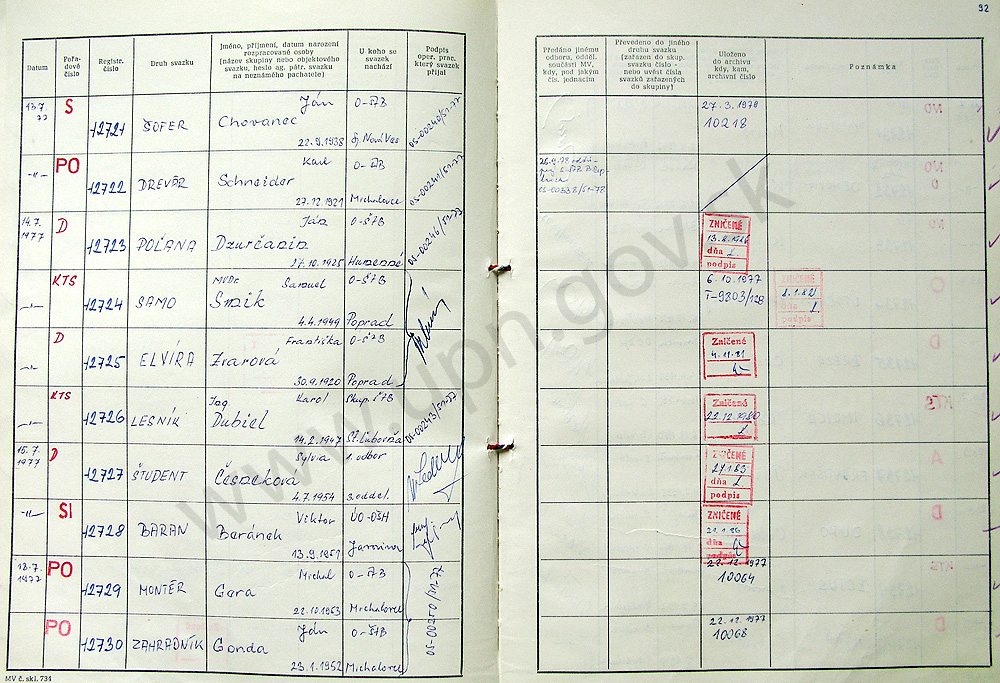 92
Datum
Pořa-
dové
číslo
Registr.
číslo
Druh svazku
Jméno, příjmení, datum narození
rozpracované osoby
(název skupiny nebo objektového
svazku, heslo ag. pátr. svazku
na neznámého pachatele)
U koho se
svazek
nachází
Podpis
oper. prac.
který svazek
přijal
Předáno jinému
odboru, odděl.
součásti MV,
kdy, pod jakým
čís. jednacím
Převedeno do jiného
druhu svazku
(zařazen do skup.
svazku číslo -
nebo uvést čísla
svazků zařazených
do skupiny)
Uloženo
do archivu
kdy, kam,
archivní číslo
Poznámka
13.7.
77
S
12721
ŠOFER
Ján
Chovanec
22.9.1938
O-ŠTB
Sp. Nová Ves
OS-00240/51-77
27.3.1978
10218
-"-
PO
12722
DREVÁR
Karl
Schneider
27.12.1921
O-ŠTB
Michalovce
OS-00241/51-77
OS-00338/51-78
14.7.
1977
D
12723
POĽANA
Ján
Dzurčanin
27.10.1925
O-ŠTB
Humenné
OS-00246/51-77
ZNIČENÉ
dňa
podpis
-"-
KTS
12724
SAMO
MVDr. Samuel
Smik
4.4.1949
O-ŠTB
Poprad
6.10.1977
T-9803/128
ZNIČENÉ
8.1.82
dňa
podpis
-"-
D
12725
ELVÍRA
Františka
Zvarová
30.9.1920
O-ŠTB
Poprad
Zničené
4.11.81
KTS
12726
LESNÍK
Ing. Karol
Dubiel
14.2.1947
Skup. ŠTB
St. Ľubovňa
OS-00243/51-77
Zničené
22.12.1980
15.7.
1977
D
12727
ŠTUDENT
Sylvia
Češneková
4.7.1954
1. odbor
3. oddel.
ZNIČENÉ
dňa
podpis
-"-
SI
12728
BARAN
Viktor
Beránek
13.9.1951
ÚO-OŠH
Javorina
ZNIČENÉ
21.1.86
dňa
podpis
18.7.
1977
PO
12729
MONTÉR
Michal
Gera
22.10.1953
O-ŠTB
Michalovce
OS-00250/51-77
22.12.1977
10064
PO
12730
ZAHRADNÍK
Ján
Gonda
23.1.1952
O-ŠTB
Michalovce
22.12.1977
10068
MV č. skl. 734
www.upn.gov.sk